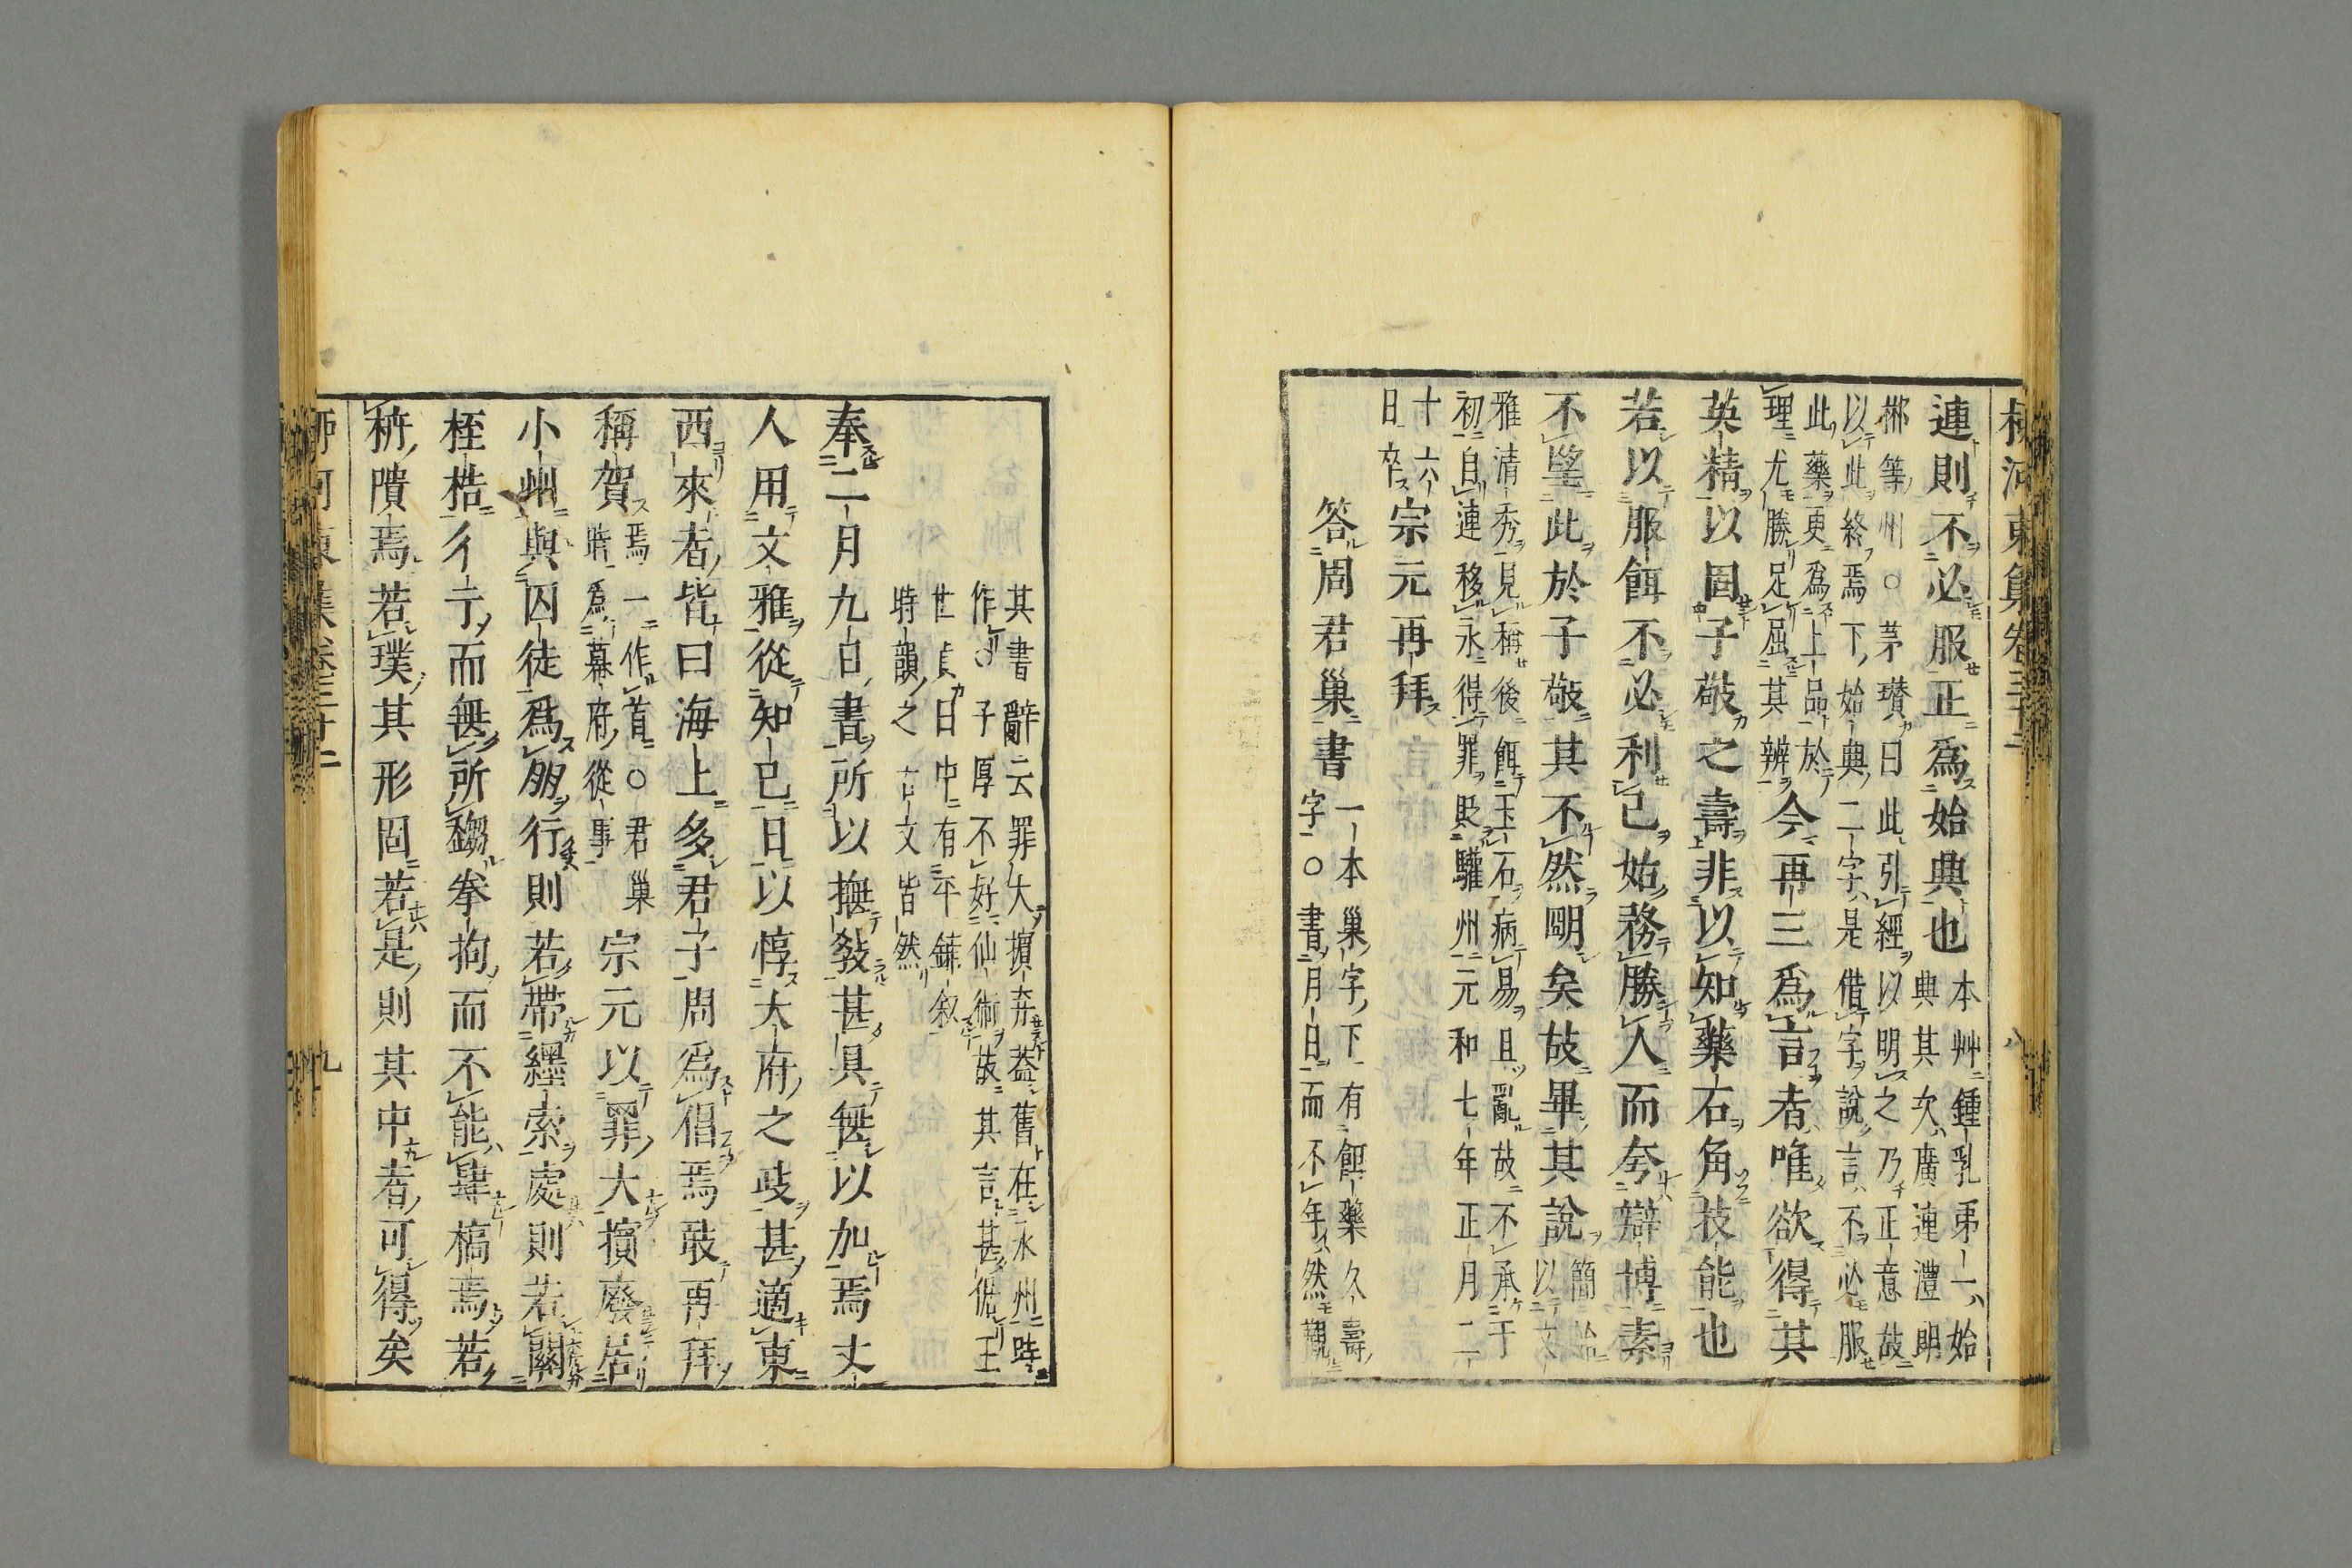 連則不必服正為始典也本艸鍾乳弟一始
典其次廣連澧朗
郴等州○茅瓚曰此引經以明之乃正意故
以此終焉下始典二字是借字說言不必服
此藥更為上品於
理尤勝足屈其辨今再三為言者唯欲得其
英精以固子敬之壽非以知藥石角技能也
若以服餌不必利己始務勝人而夸辯博素
不望此於子敬其不然明矣故畢其說簡始
以文
雅清秀見稱後餌玉石病易且亂故不承于
初自連移永得罪貶驩州元和七年正月二
十六
日卒宗元再拜
答周君巢書一本巢字下有餌藥久壽
字○書月日而不年然觀
其書辭云罪大擯弃蓋舊在永州時
作○子厚不好仙術故其言甚倨王
世貞曰中有平鋪叙
時韻之古文皆然
奉二月九日書所以撫敎甚具無以加焉丈
人用文雅從知己日以惇大府之政甚適東
西來者皆曰海上多君子周為倡焉敢再拜
稱賀焉一作首○君巢
時為幕府從事宗元以罪大擯廢居
小州與囚徒為朋行則若帶纆索處則若關
桎梏彳亍而無所趨拳拘而不能肆槁焉若
枿隤焉若璞其形固若是則其中者可得矣
九